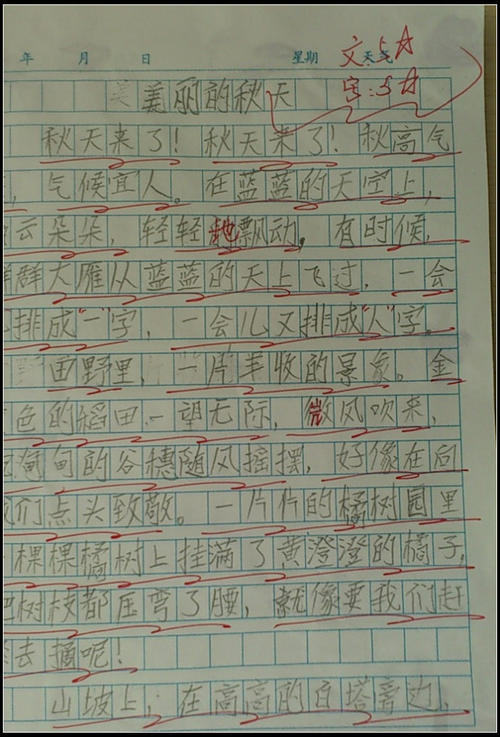 年 月 日 星期 天气
文:5☆
字:5☆
美丽的秋天
秋天来了!秋天来了!秋高气
,气候宜人。在蓝蓝的天空上,
云朵朵,轻轻地飘动。有时候,
群大雁从蓝蓝的天上飞过,一会
排成"一"字,一会儿又排成"人"字。
田野里,一片丰收的景象。金
色的稻田一望无际,微风吹来,
甸甸的谷穗随风摇摆,好像在向
们点头致敬。一片片的橘树园里
棵棵橘树上挂满了黄澄澄的橘子,
把树枝都压弯了腰,就像要我们赶
去摘呢!
山坡上,在高高的白塔旁边,